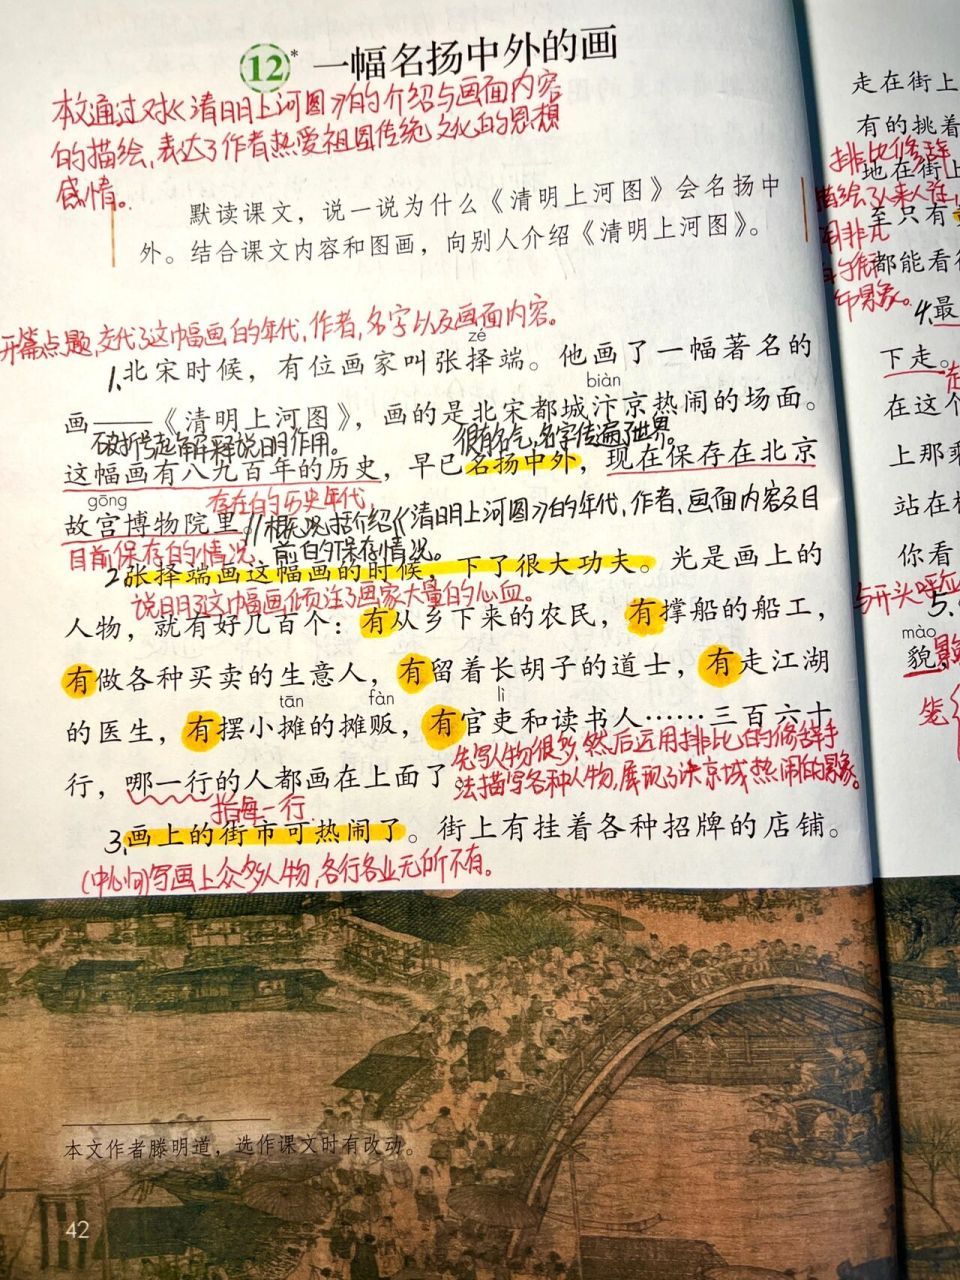 12* 一幅名扬中外的画
本文通过对《清明上河图》的介绍与画面内容
的描绘,表达了作者热爱祖国传统文化的思想
感情。
默读课文，说一说为什么《清明上河图》会名扬中
外。结合课文内容和图画，向别人介绍《清明上河图》。
开篇点题,交代了这幅画的年代,作者,名字以及画面内容。
zé
1.北宋时候，有位画家叫张择端。他画了一幅著名的
biàn
画——《清明上河图》，画的是北宋都城汴京热闹的场面。
破折号起解释说明作用。 很有名气,名字传遍了世界。
这幅画有八九百年的历史，早已名扬中外，现在保存在北京
gōng 存在的历史年代,
故宫博物院里。//概况介绍《清明上河图》的年代,作者,画面内容及目
目前保存的情况、 前的保存情况。
2.张择端画这幅画的时候，下了很大功夫。光是画上的
说明了这幅画倾注了画家大量的心血。
人物，就有好几百个：有从乡下来的农民，有撑船的船工，
有做各种买卖的生意人，有留着长胡子的道士，有走江湖
tān fàn lì
的医生，有摆小摊的摊贩，有官吏和读书人……三百六十
先写人物很多,然后运用排比的修辞手
行，哪一行的人都画在上面了。
法描写各种人物,展现了汴京城热闹的景象。
指每一行.
3.画上的街市可热闹了。街上有挂着各种招牌的店铺。
(中心句)写画上众多人物,各行各业无所不有。
本文作者滕明道，选作课文时有改动。
42
走在街上
有的挑着
排比修辞
地在街上
描绘了人来人往,
至只有
都能看
景象。
4.最
下走。
在这个
上那乘
站在
你看
与开头呼应
5.
mào
貌，